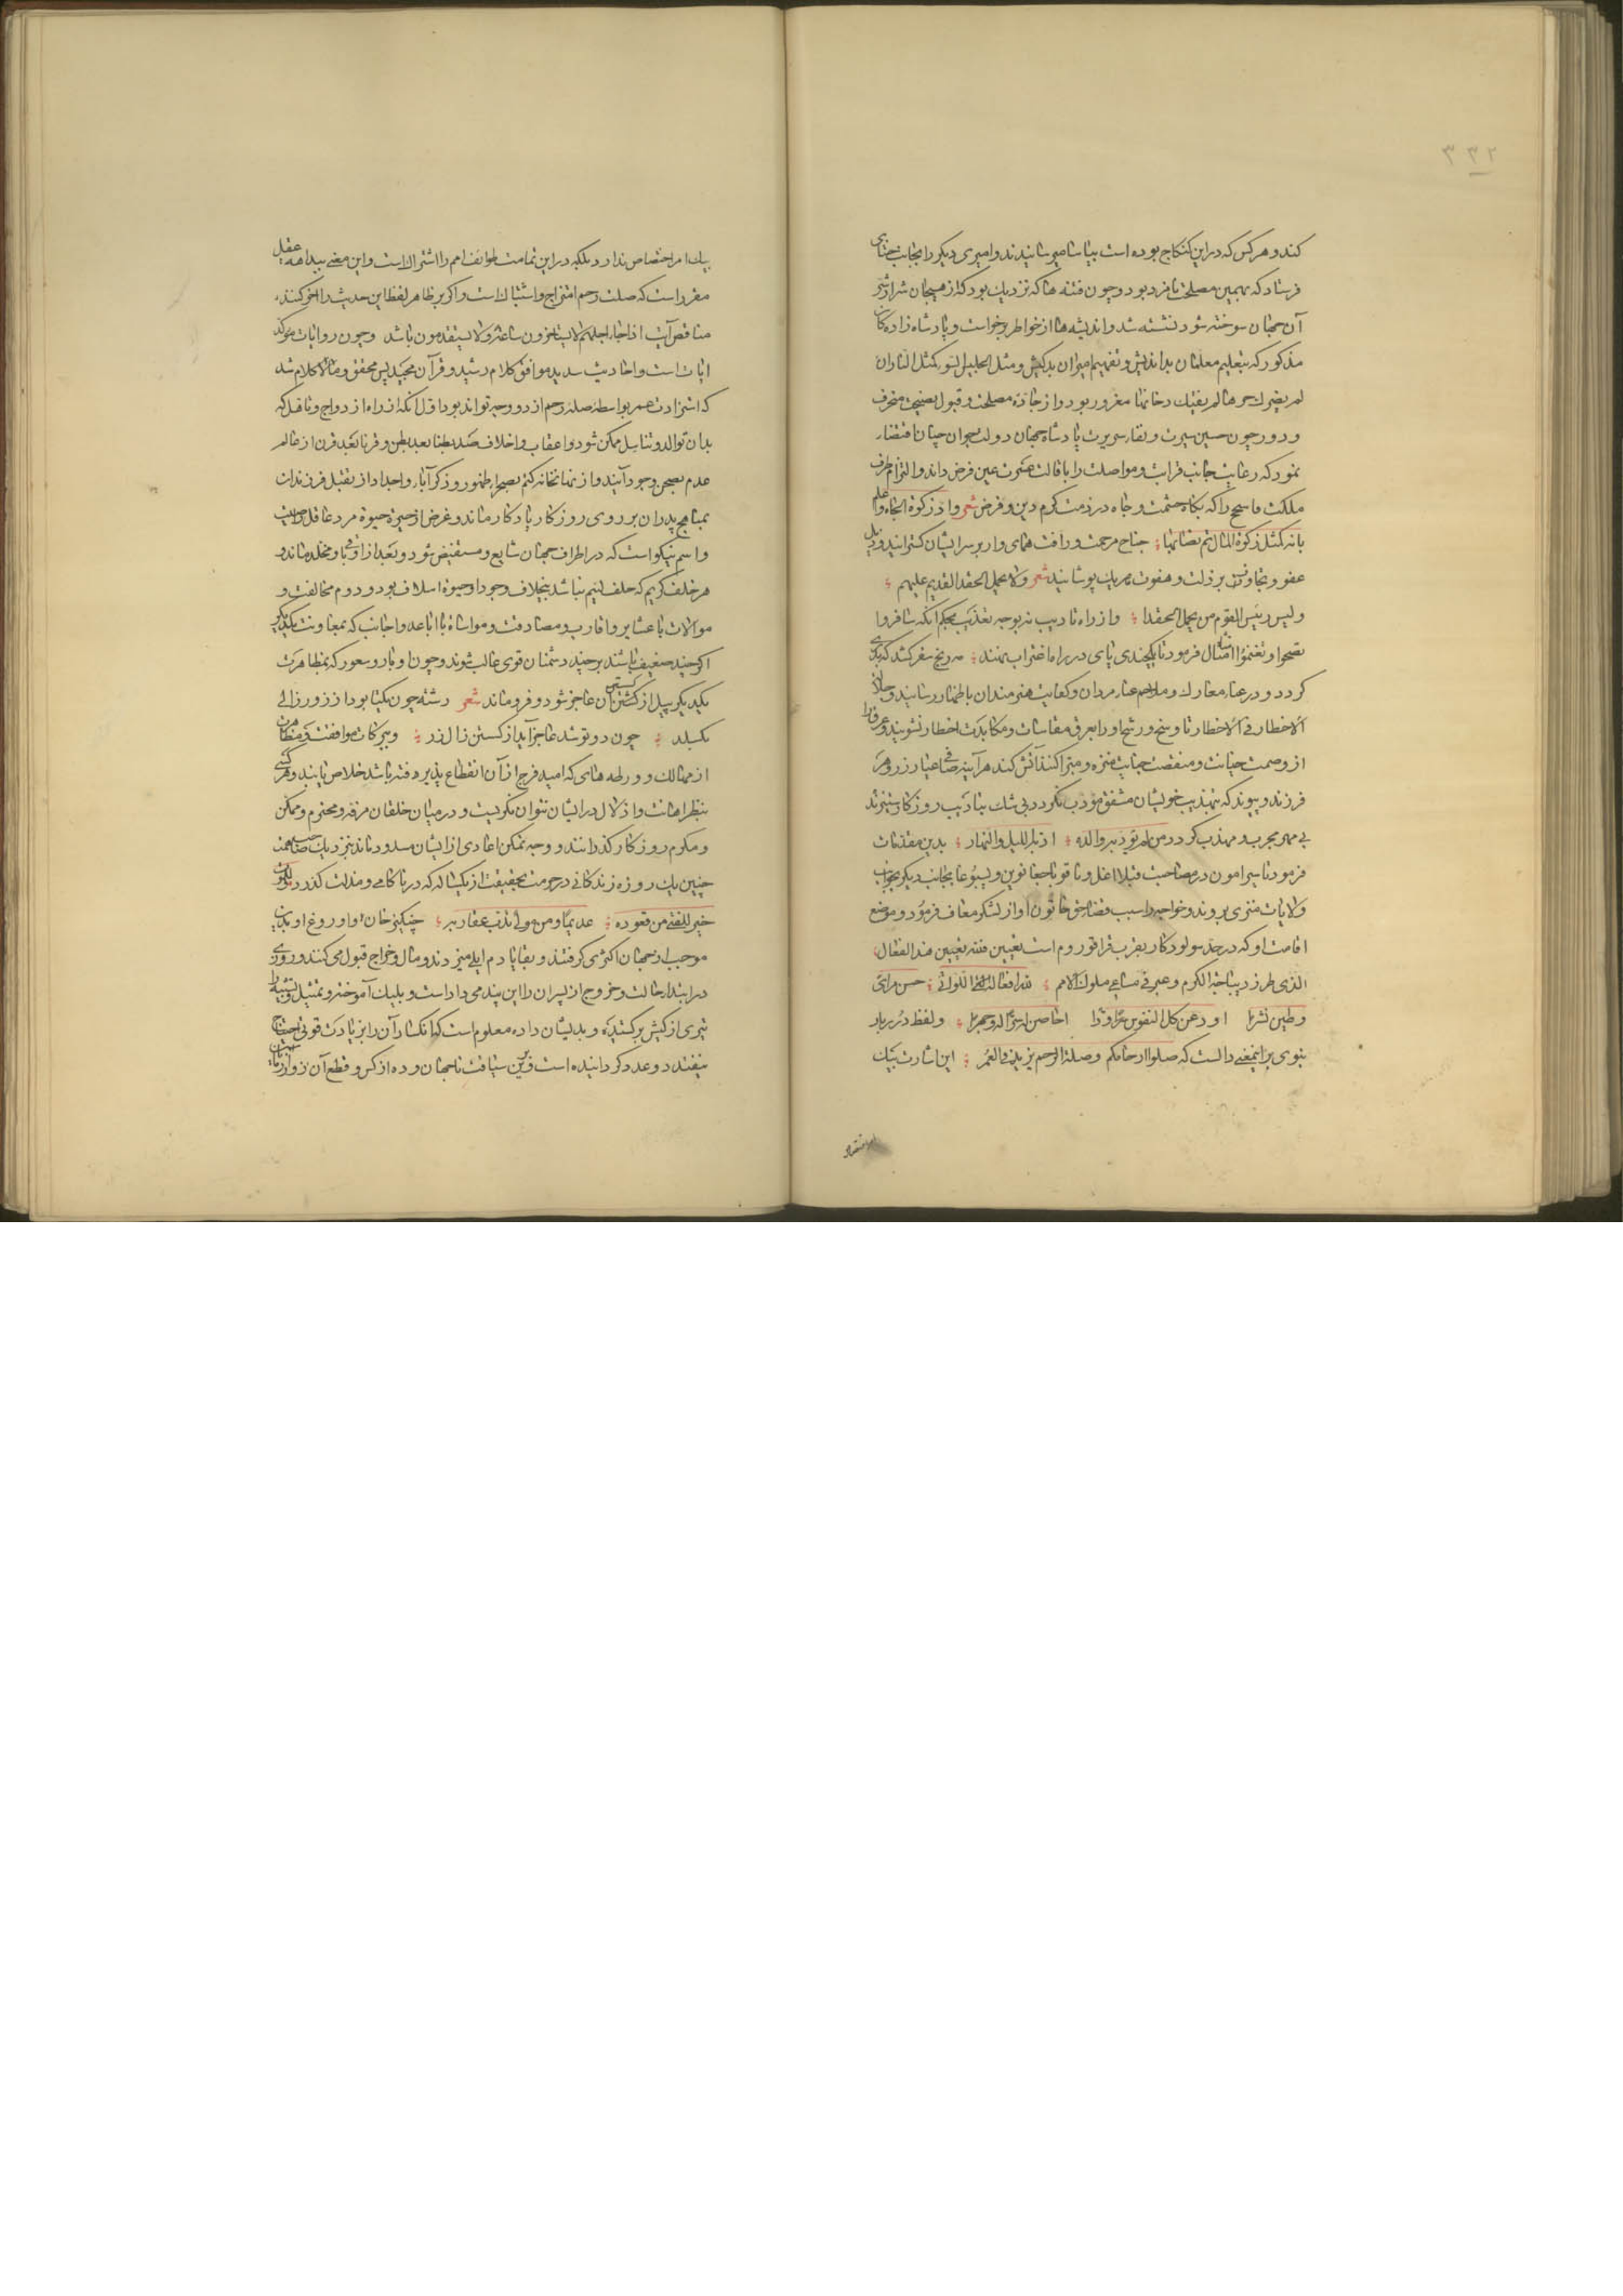 ۳۳۲
کند و هر کس که در این کنکاج بوده است بیاسا رسانیدند و امیری دیکر را بجانب ختای
فرستاد که بهمین مصلحت نامزد بود و چون فتنه ها که نزدیک بود که از هیجان شرار شر
آن جهان سوخته شود نشسته شد و اندیشه ها از خواطر برخواست و پادشاه زاده کان
مذکور که بتعلیم معلمان بداندیش و تفهیم امیران بدکیش و مثل الجلیس السّوء کمثل النار ان
لم یضرک حرها لم یفتک دخانها مغرور بود و از جادّه مصلحت و قبول نصیحت منحرف
و دور چون حسن سیرت و نقاء سریرت پادشاه جهان دولت جوان چنان اقتضاء
نمود که رعایت جانب قرابت و مواصلت را با قالت عثرت عین فرض داند و التزام طرف
ملکت فاسجح را که بکاه حشمت و جاه در ذمت کرم دین و فرض شعر وادّ زکوة الجاه واعلم
بانه کمثل زکوة المال تم نصابها جناح مرحمت و رافت همای وار بر سر ایشان کسترانید و ذیل
عفو و تجاوز بر ذلت و هفوت هریک پوشانید شعر ولا احمل الحقد القدیم علیهم
ولیس رئیس القوم من یحمل الحقدا و از راه تادیب نه بوجه تعذیب بحکم انکه سافروا
تصحوا و تغنموا امتثال فرمود تا یکچندی پای در راه اغتراب نهند و رنج سفر کشد که
کردد و در عناء معارک و ملاحم غناء مردان و کفایت هنرمندان باظهار رسانند و
الاخطار فی الاخطار تا وسخ ورشح او را بعرق مقاسات و مکابدت اخطار نشویند و
از وصمت خیانت و منقصت جنایت منزه و مبرا کند آتش کند هر آینه صافی عیار زر و هر
فرزند و پیوند که بتهذیب خویشان مشفق مؤدب نکردد بی شک بتادیب روزکار ستیزنده
بی مهر مجرب و مهذب کردد من لم یؤدبه والده ادبه اللیل والنهار بدین مقدمات
فرمود تا سیرامون در مصاحبت قبلا اغل و ناقو با جغا نوین و یسبوغا بجانب دیکر بجوانب
ولایات منزی بروند و خواجه را سبب قضاء حق خاتون او از لشکر معاف فرمود و موضع
اقامت او که در حد سولودکار بقرب قراقوروم است تعیین فتنه تعیین هذا الفعال
الذی طرز دیباجة الکرم و عبر فی مساعی ملوک الامم لله افعاله اللواتی حسن مرای
و طبن نشرا اودعن کل النفوس وّدا اخلصن اسراله و جهرا و لفظ دُرربار
نبوی بر اینمعنی دالست که صلوا ارحامکم و صلة الرحم یزید فی العُمر این اشارت بیک
بیک امر اختصاص ندارد بلکه در این تمامت طوایف امم را اشتراک است و این معنی ببداهه عقل
مقرر است که صلت رحم امتزاج و اشتباک است و اکر بر ظاهر لفظ این حدیث را اخذ کنند
مناقض آیت اذا جاء اجلهم لا یستاخرون ساعة ولا یستقدمون باشد و چون روایات مؤکد
ایات است و احادیث سدید موافق کلام رشید و قرآن مجید پس محقق و مآل کلام شد
که استزادت عمر بواسطه صله رحم از دو وجه تواند بود اول آنکه از راه ازدواج و تاهل که
بدان توالد و تناسل ممکن شود و اعقاب و اخلاف بطنا بعد بطن و قرنا بَعد قرن از عالم
عدم بصحن وجود آیند و از نهانخانه کتم بصحراء ظهور و ذکر آباء و اجداد از تقبل فرزندان
بمناهج پدران بر روی روزکار یادکار ماند و غرض از حیوة مرد عاقل صیت
و اسم نیکو است که در اطراف جهان شایع و مستفیض شود و بَعد از او باقی و مخلد ماند و
هر خلف کریم که خلف لئیم نباشد بخلاف وجود او حیوة اسلاف بود و دوم مخالفت و
موالات با عشایر و اقارب و مصادقت و مواساة با اباعد و اجانب که بمعاونت یکدیکر
اکر چند ضعیف باشند بر چند دشمنان قوی غالب شوند و چون تار و پود که بمظاهرت
یکدیکر پیل از کسستن آن عاجز شود و فرو ماند شعر رشته چون یکتا بود از زور زالی
بکسلد چون دو تو شد عاجز آید از کسستن زال زر و ببرکات موافقت و مظاهرت
از مهالک و ورطه های که امید فرج از آن انقطاع پذیرفته باشد خلاص یابند و هر کسی
بنظر اهانت و اذلال در ایشان نتوان نکریست و در میان خلقان مرفه و محترم و ممکن
و مکرم روزکار کذرانند و وجه تمکن اعادی از ایشان مسدود ماند نزدیک صاحب همت
چنین یک روزه زندکانی در حرمت بحقیقت از یکساله که در ناکامی و مذلت کذرد
خیر للفتی من قعوده عدیما و من مولی تدب عقاربه چنکیز خان و اوروغ او بدین
موجب از جهان اکثری کرفتند و بقایا دم ایلی میزدند و مال و خراج قبول می کنند و روزی
در ابتداء حالت و خروج از پسران را این پند می داد است و بلیک آموخته و تمثیل و تشبیه
تیری از کیش برکشیده و بدیشان داده معلوم است که انکسار آن را بزیادت قوتی احتیاج
نیفتد دو عدد کردانیده است و بدین سیاقت تا جهارده از کسر و قطع آن زور آزمایان